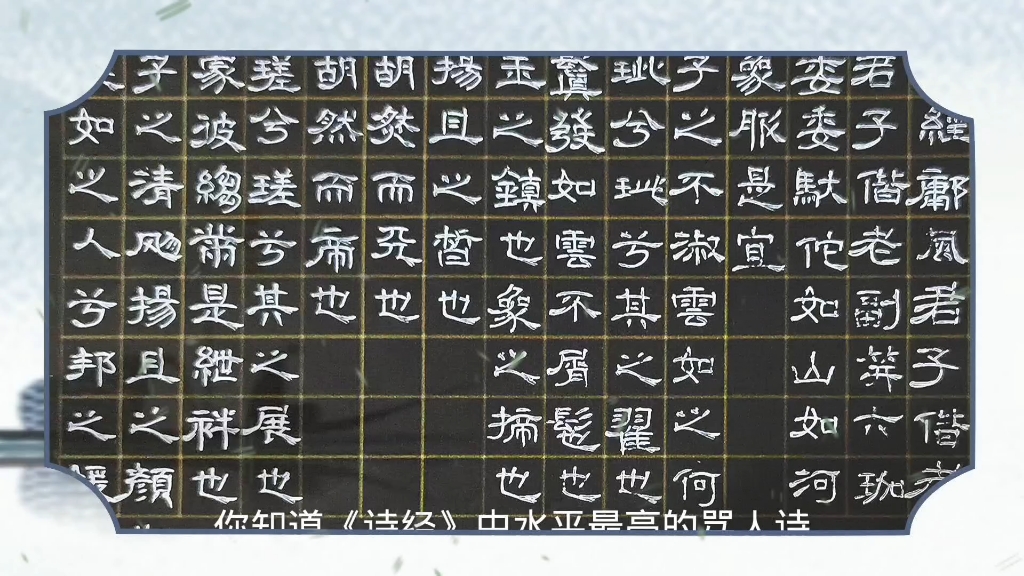 經鄘風君子偕老
君子偕老副笄六珈
委委馱佗如山如河
象服是宜
子之不淑雲如之何
玼兮玼兮其之翟也
鬒發如雲不屑髢也
玉之鎮也象之揥也
揚且之皙也
胡然而兲也
胡然而帝也
瑳兮瑳兮其之展也
蒙彼縐是紲袢也
子之清飏揚且之顏
如之人兮邦之媛
你知道《诗经》中水平最高的咒人诗